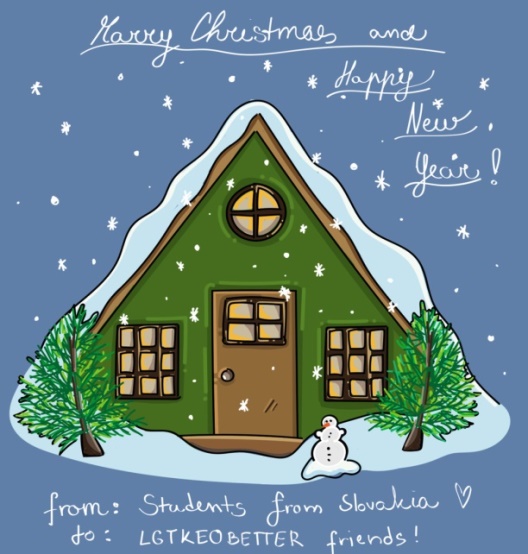 Marry Christmas and
Happy
New
Year!
from: Students from Slovakia ♡
to: LGTKEOBETTER friends!